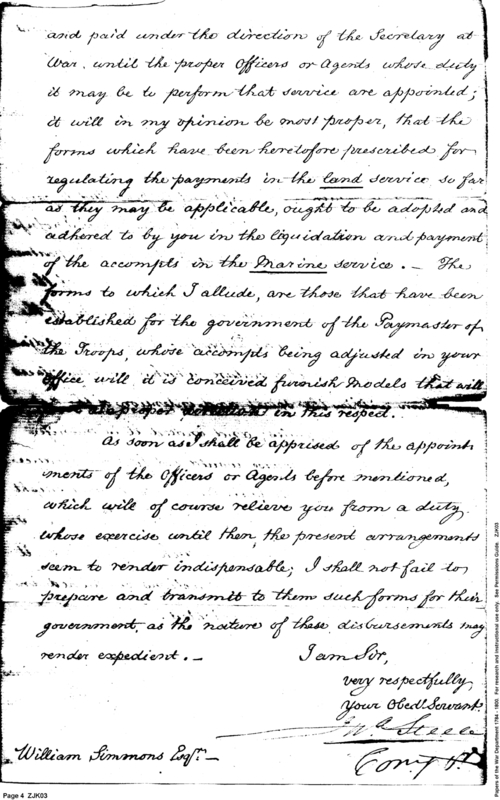 and paid under the direction of the Secretary at
War. until the proper Officers or Agents whose duty
it may be to perform that service are appointed;
it will in my opinion be most proper, that the
forms which have been heretofore prescribed for
regulating the payments in the land service so far
as they may be applicable, ought to be adopted and
adhered to by you in the liquidation and payment
of the accompts in the Marine service. — The
forms to which I allude, are those that have been
established for the government of the Paymaster of
the Troops, whose accompts being adjusted in your
Office will it is conceived furnish Models that will
a proper in this respect.
As soon as I shall be apprised of the appoint
ments of the Officers or Agents before mentioned,
which will of course relieve you from a duty
whose exercise until then, the present arrangements
seem to render indispensable; I shall not fail to
prepare and transmit to them such forms for their
government, as the nature of these disbursements may
render expedient. —
I am Sir,
very respectfully
Your Obedt. Servant.
Steele
William Simmons Esqr. —
Page 4 ZJK03
Papers of the War Department 1784 - 1800. For research and instructional use only. See Permissions Guide. ZJK03